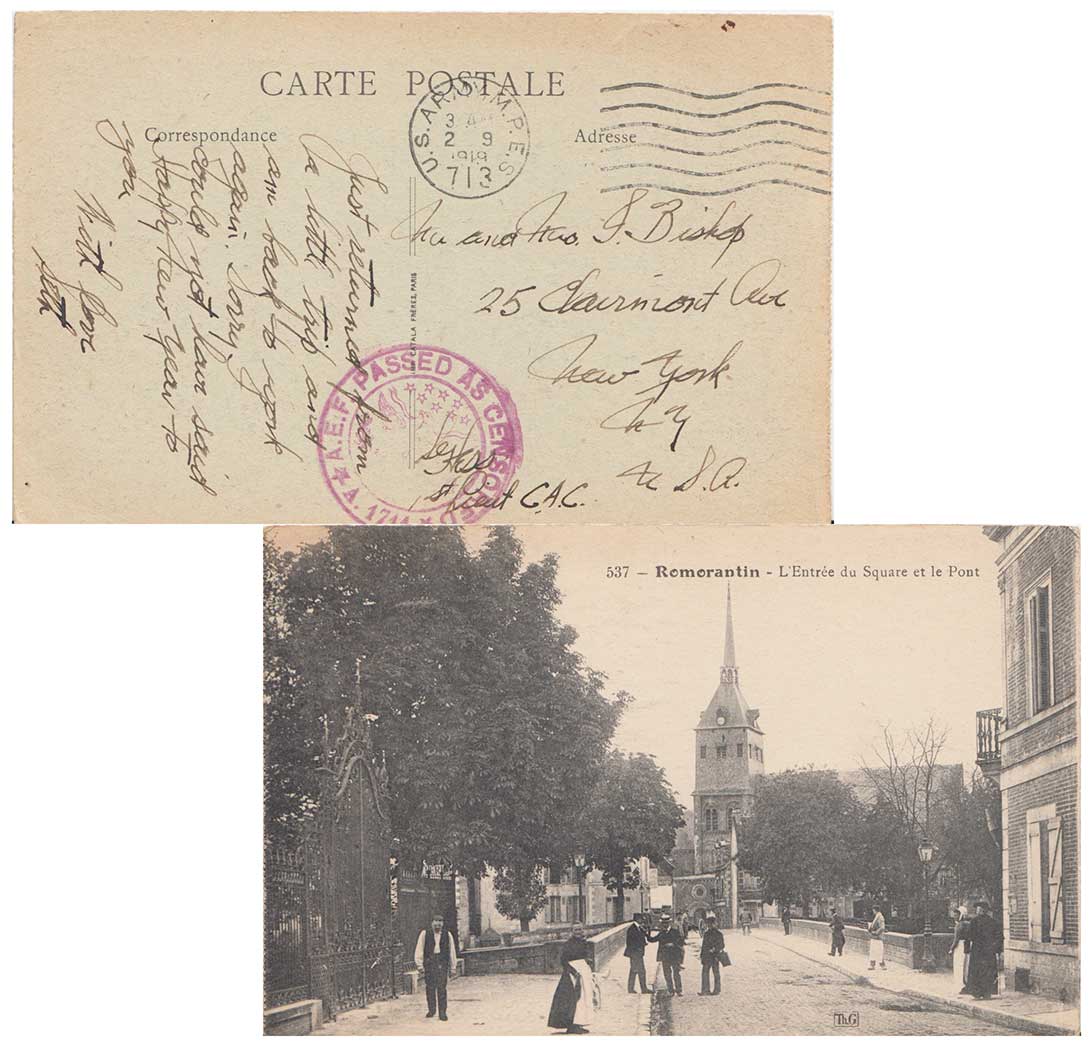 CARTE POSTALE
Correspondance
Adresse
U.S. ARMY M.P.E.S.
3 AM
2 9
1919
713
Just returned from
a little trip and
am back to work
again. Sorry
could not have said
Happy New Year to
you
With love
Seth
CATALA FRÈRES, PARIS
Mr and Mrs. I. Bishop
25 Clairmont Ave
New York
N Y
U S.A.
A.E.F. PASSED AS CENSORED
A. 1711
Hess
1st Lieut C.A.C.
537 – Romorantin - L'Entrée du Square et le Pont
Th.G